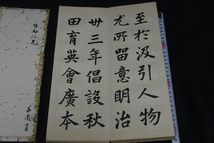 至於汲引人物
尤所留意明治
卅三年倡設秋
田育英會廣本